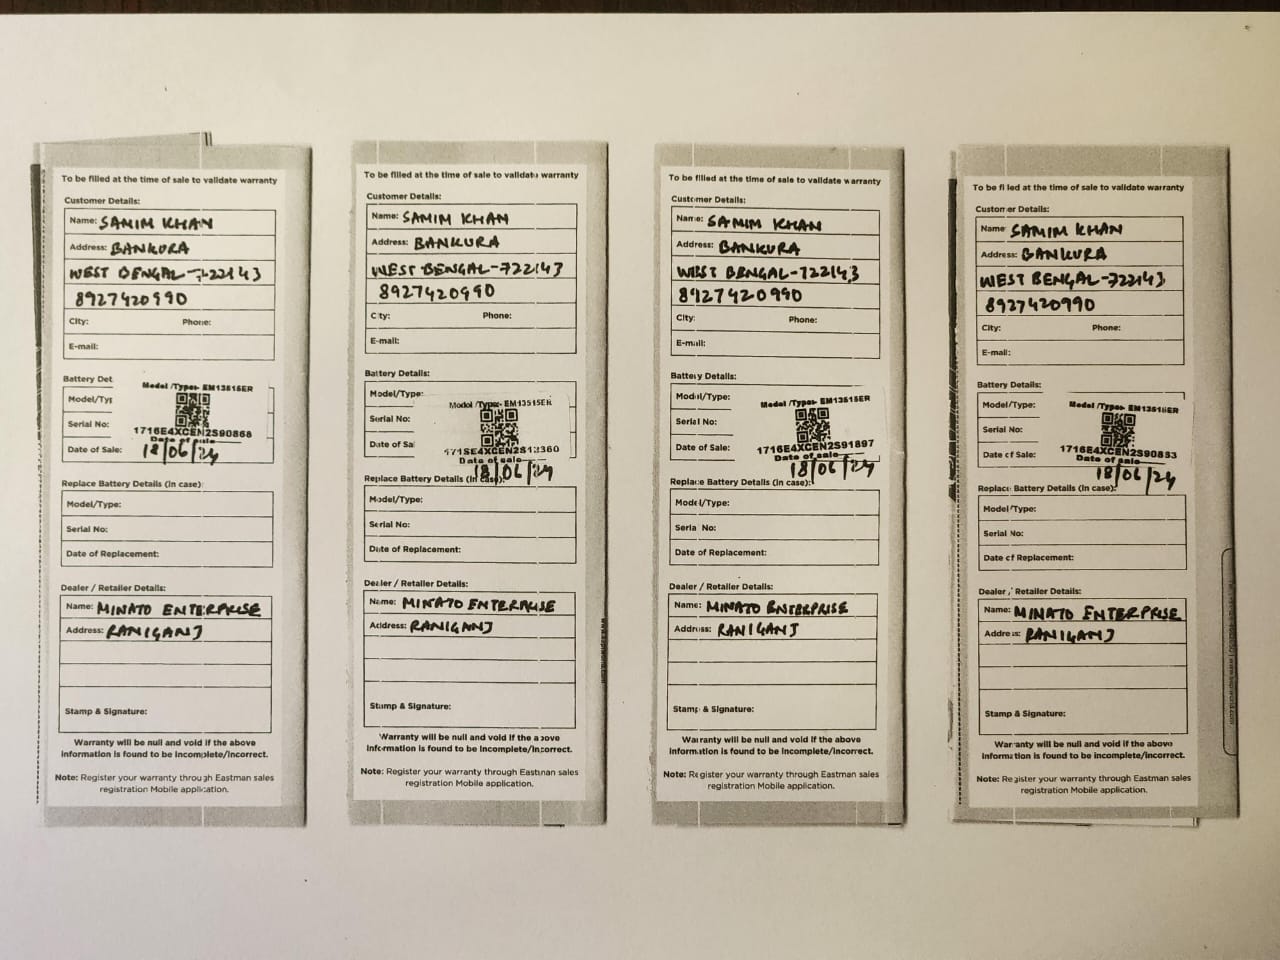 To be filled at the time of sale to validate warranty
Customer Details:
Name: SAMIM KHAN
Address: BANKURA
WEST BENGAL-722143
8927420990
City: Phone:
E-mail:
Battery Det
Model/Typ
Model /Type- EM13515ER
Serial No:
1716E4XCEN2S90868
Date of sale
Date of Sale: 18/06/24
Replace Battery Details (In case):
Model/Type:
Serial No:
Date of Replacement:
Dealer / Retailer Details:
Name: MINATO ENTERPRISE
Address: RANIGANJ
Stamp & Signature:
Warranty will be null and void if the above
information is found to be incomplete/incorrect.
Note: Register your warranty through Eastman sales
registration Mobile application.
To be filled at the time of sale to validate warranty
Customer Details:
Name: SAMIM KHAN
Address: BANKURA
WEST BENGAL-722143
8927420990
City: Phone:
E-mail:
Battery Details:
Model/Type:
Model /Type- EM13515ER
Serial No:
Date of Sa
Date of sale
18/06/24
Replace Battery Details (In case):
Model/Type:
Serial No:
Date of Replacement:
Dealer / Retailer Details:
Name: MINATO ENTERPRISE
Address: RANIGANJ
Stamp & Signature:
Warranty will be null and void if the above
information is found to be incomplete/incorrect.
Note: Register your warranty through Eastman sales
registration Mobile application.
To be filled at the time of sale to validate warranty
Customer Details:
Name: SAMIM KHAN
Address: BANKURA
WEST BENGAL-722143
8927420990
City: Phone:
E-mail:
Battery Details:
Model/Type:
Model /Type- EM13515ER
Serial No:
1716E4XCEN2S91897
Date of Sale:
Date of sale
18/06/24
Replace Battery Details (In case):
Model/Type:
Serial No:
Date of Replacement:
Dealer / Retailer Details:
Name: MINATO ENTERPRISE
Address: RANIGANJ
Stamp & Signature:
Warranty will be null and void if the above
information is found to be incomplete/incorrect.
Note: Register your warranty through Eastman sales
registration Mobile application.
To be filled at the time of sale to validate warranty
Customer Details:
Name: SAMIM KHAN
Address: BANKURA
WEST BENGAL-722143
8927420990
City: Phone:
E-mail:
Battery Details:
Model/Type:
Model /Type- EM13515ER
Serial No:
1716E4XCEN2S90853
Date of Sale:
Date of sale
18/06/24
Replace Battery Details (In case):
Model/Type:
Serial No:
Date of Replacement:
Dealer / Retailer Details:
Name: MINATO ENTERPRISE
Address: RANIGANJ
Stamp & Signature:
Warranty will be null and void if the above
information is found to be incomplete/incorrect.
Note: Register your warranty through Eastman sales
registration Mobile application.